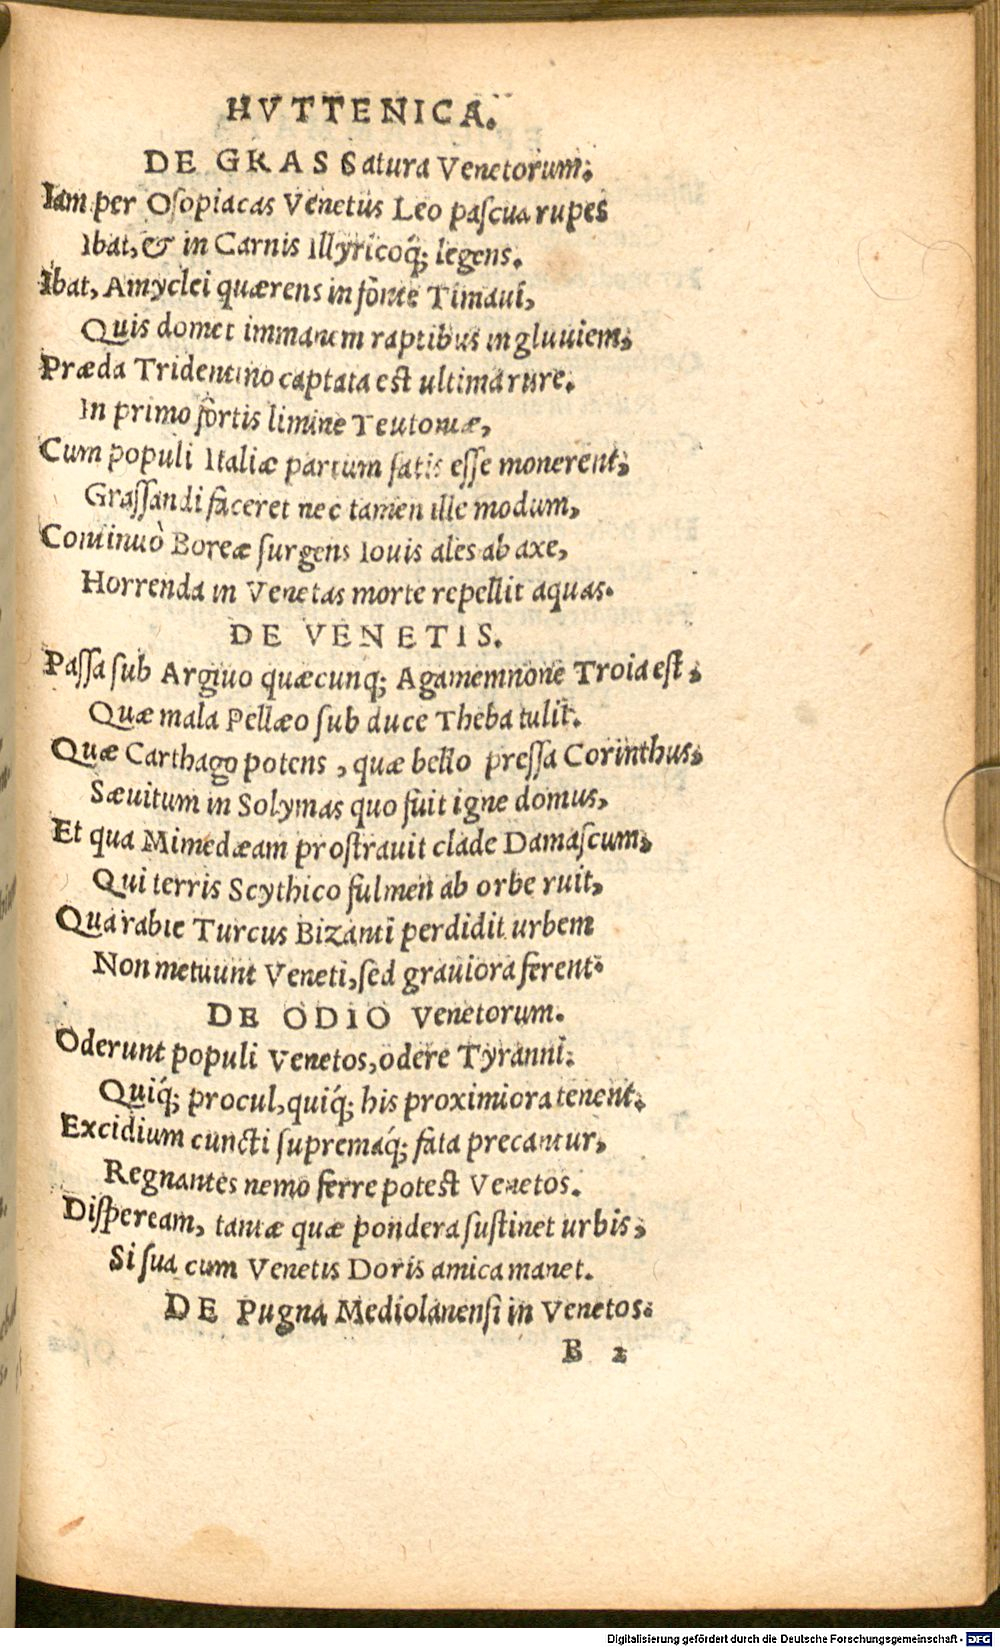 HVTTENICA.
DE GRASSatura Venetorum.
Iam per Osopiacas Venetus Leo pascua rupes
Ibat, & in Carnis Illyricoq́; legens.
Ibat, Amyclei quærens in fõnte Timaui,
Quis domet immanem raptibus ingluuiem,
Præda Tridentino captata est ultima rure.
In primo fortis limine Teutoniæ,
Cum populi Italiæ partum satis esse monerent,
Grassandi faceret nec tamen ille modum,
Continuò Boreæ surgens Iouis ales ab axe,
Horrenda in Venetas morte repellit aquas.
DE VENETIS.
Passa sub Argiuo quæcunq; Agamemnone Troia est,
Quæ mala Pellæo sub duce Theba tulit.
Quæ Carthago potens, quæ bello pressa Corinthus,
Sæuitum in Solymas quo fuit igne domus,
Et qua Mimedæam prostrauit clade Damascum,
Qui terris Scythico fulmen ab orbe ruit,
Qua rabie Turcus Bizanti perdidit urbem
Non metuunt Veneti, sed grauiora ferent.
DE ODIO Venetorum.
Oderunt populi Venetos, odere Tyranni.
Quiq́; procul, quiq́; his proximiora tenent.
Excidium cuncti supremaq́; fata precantur,
Regnantes nemo ferre potest Venetos.
Dispeream, tantæ quæ pondera sustinet urbis,
Si sua cum Venetis Doris amica manet.
DE Pugna Mediolanensi in Venetos.
B 2
Digitalisierung gefördert durch die Deutsche Forschungsgemeinschaft - DFG